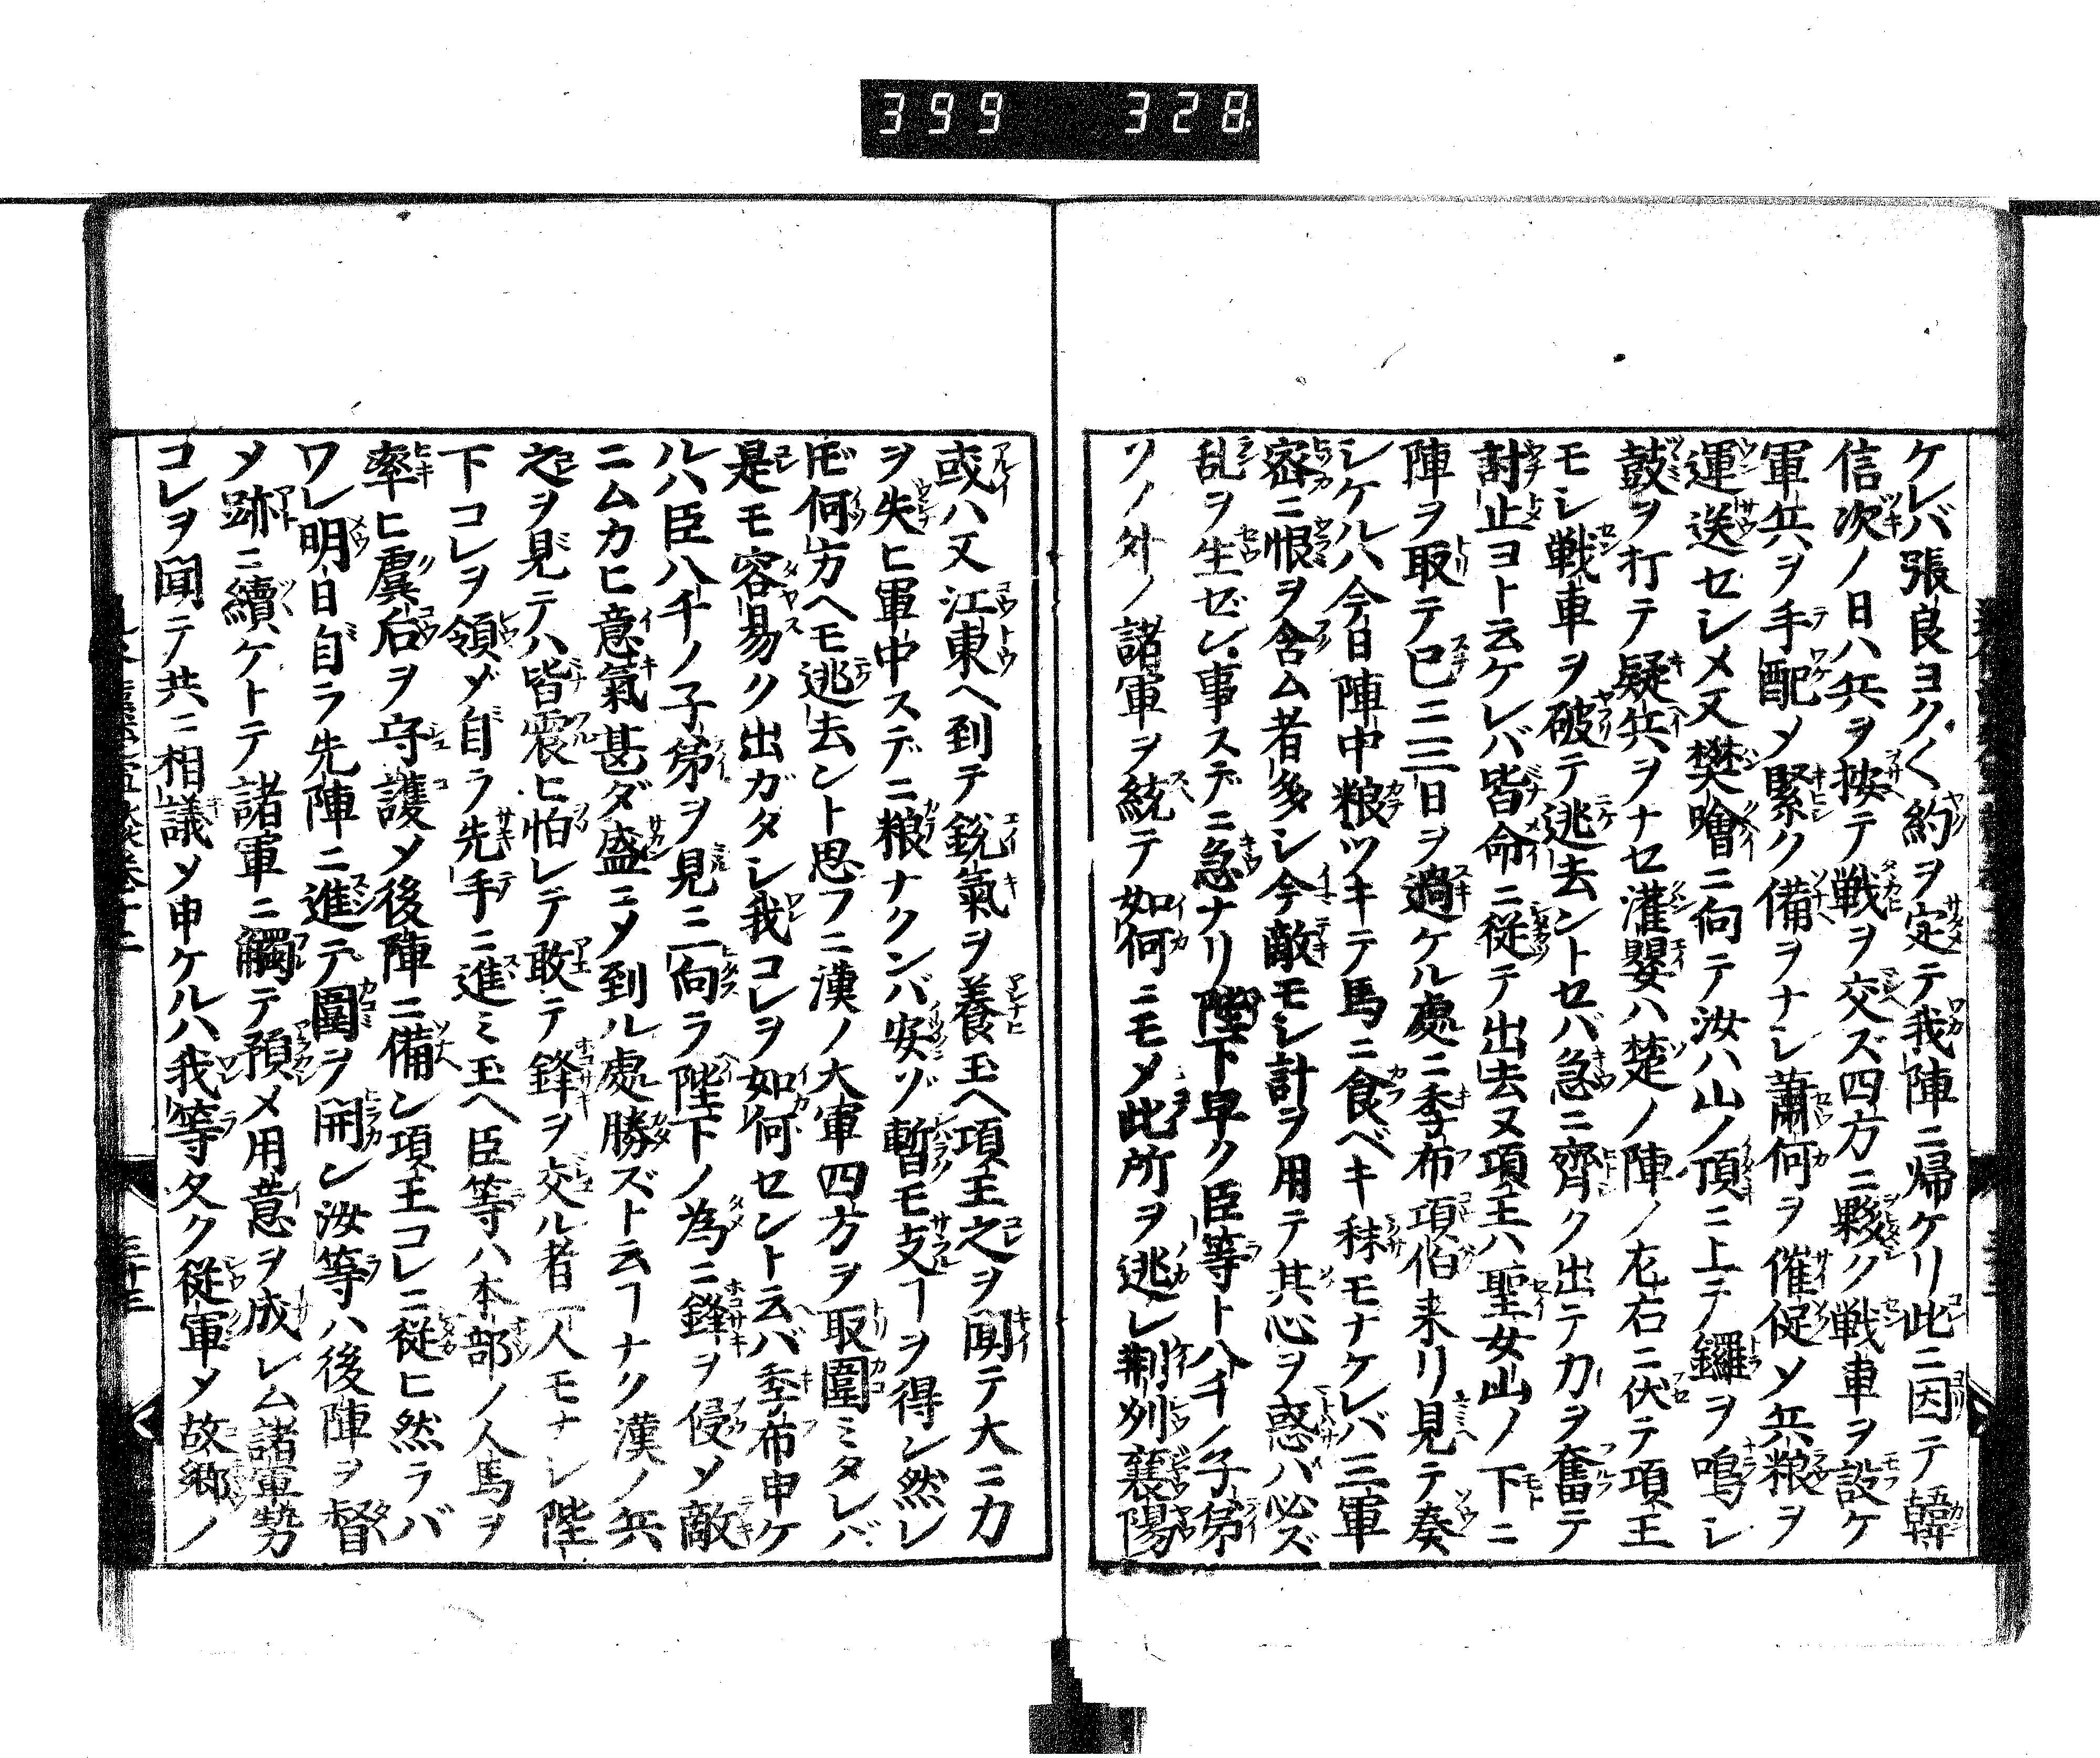 399 328.
ケレバ張良ヨク〱約ヲ定テ我陣ニ帰ケリ此ニ因テ韓
信次ノ日ハ兵ヲ按テ戦ヲ交ズ四方ニ夥ク戦車ヲ設ケ
軍兵ヲ手配メ緊ク備ヲナシ蕭何ヲ催促ソ兵粮ヲ
運送セシメ又樊噲ニ向テ汝ハ山ノ頂ニ上テ鑼ヲ鳴シ
鼓ヲ打テ疑兵ヲナセ灌嬰ハ楚ノ陣ノ左右ニ伏テ項王
モシ戦車ヲ破テ逃去ントセバ急ニ齊ク出テ力ヲ奮テ
討止ヨト云ケレバ皆命ニ従テ出去ヌ項王ハ聖女山ノ下ニ
陣ヲ取テ已ニ二三日ヲ過ケル處ニ季布項伯来リ見テ奏
シケルハ今日陣中粮ツキテ馬ニ食ベキ秣モナケレバ三軍
密ニ恨ヲ含ム者多シ今敵モシ計ヲ用テ其心ヲ惑ハ必ズ
乱ヲ生ゼン事スデニ急ナリ陛下早ク臣等ト八千ノ子弟
ソノ外ノ諸軍ヲ統テ如何ニモメ此所ヲ逃レ荊州襄陽
或ハ又江東ヘ到テ鋭氣ヲ養玉ヘ項王之ヲ聞テ大ニ力
ヲ失ヒ軍中スデニ粮ナクンバ安ゾ暫モ支ヿヲ得ン然レ
𪜈何方ヘモ逃去ント思フニ漢ノ大軍四方ヲ取圍ミタレバ
是モ容易ク出ガタシ我コレヲ如何セント云バ季布申ケ
ルハ臣八千ノ子弟ヲ見ニ一向ラ陛下ノ為ニ鋒ヲ侵ソ敵
ニムカヒ意氣甚ダ盛ニメ到ル處勝ズト云ヿナク漢ノ兵
之ヲ見テハ皆震ヒ怕レテ敢テ鋒ヲ交ル者一人モナシ陛
下コレヲ領メ自ラ先手ニ進ミ玉ヘ臣等ハ本部ノ人馬ヲ
率ヒ虞后ヲ守護メ後陣ニ備ン項王コレニ従ヒ然ラバ
ワレ明日自ラ先陣ニ進テ圍ヲ開ン汝等ハ後陣ヲ督
メ跡ニ續ケトテ諸軍ニ觸テ預メ用意ヲ成レム諸軍勢
コレヲ聞テ共ニ相議メ申ケルハ我等久ク従軍メ故郷ノ